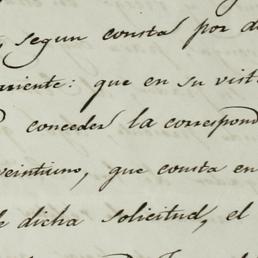 , segun consta por d
ariente: que en su vist
conceder la correspond
veintiuno, que consta en
e dicha solicitud, el